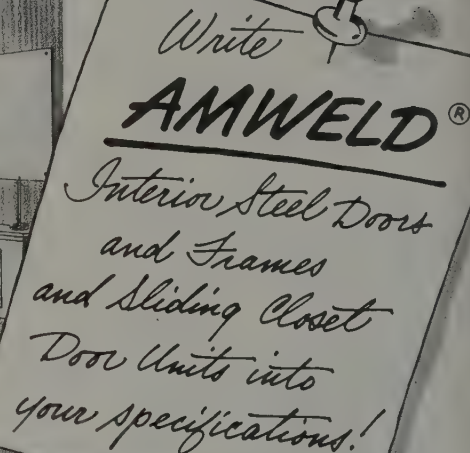 Write
AMWELD®
Interior Steel Doors
and Frames
and Sliding Closet
Door Units into
your specifications!